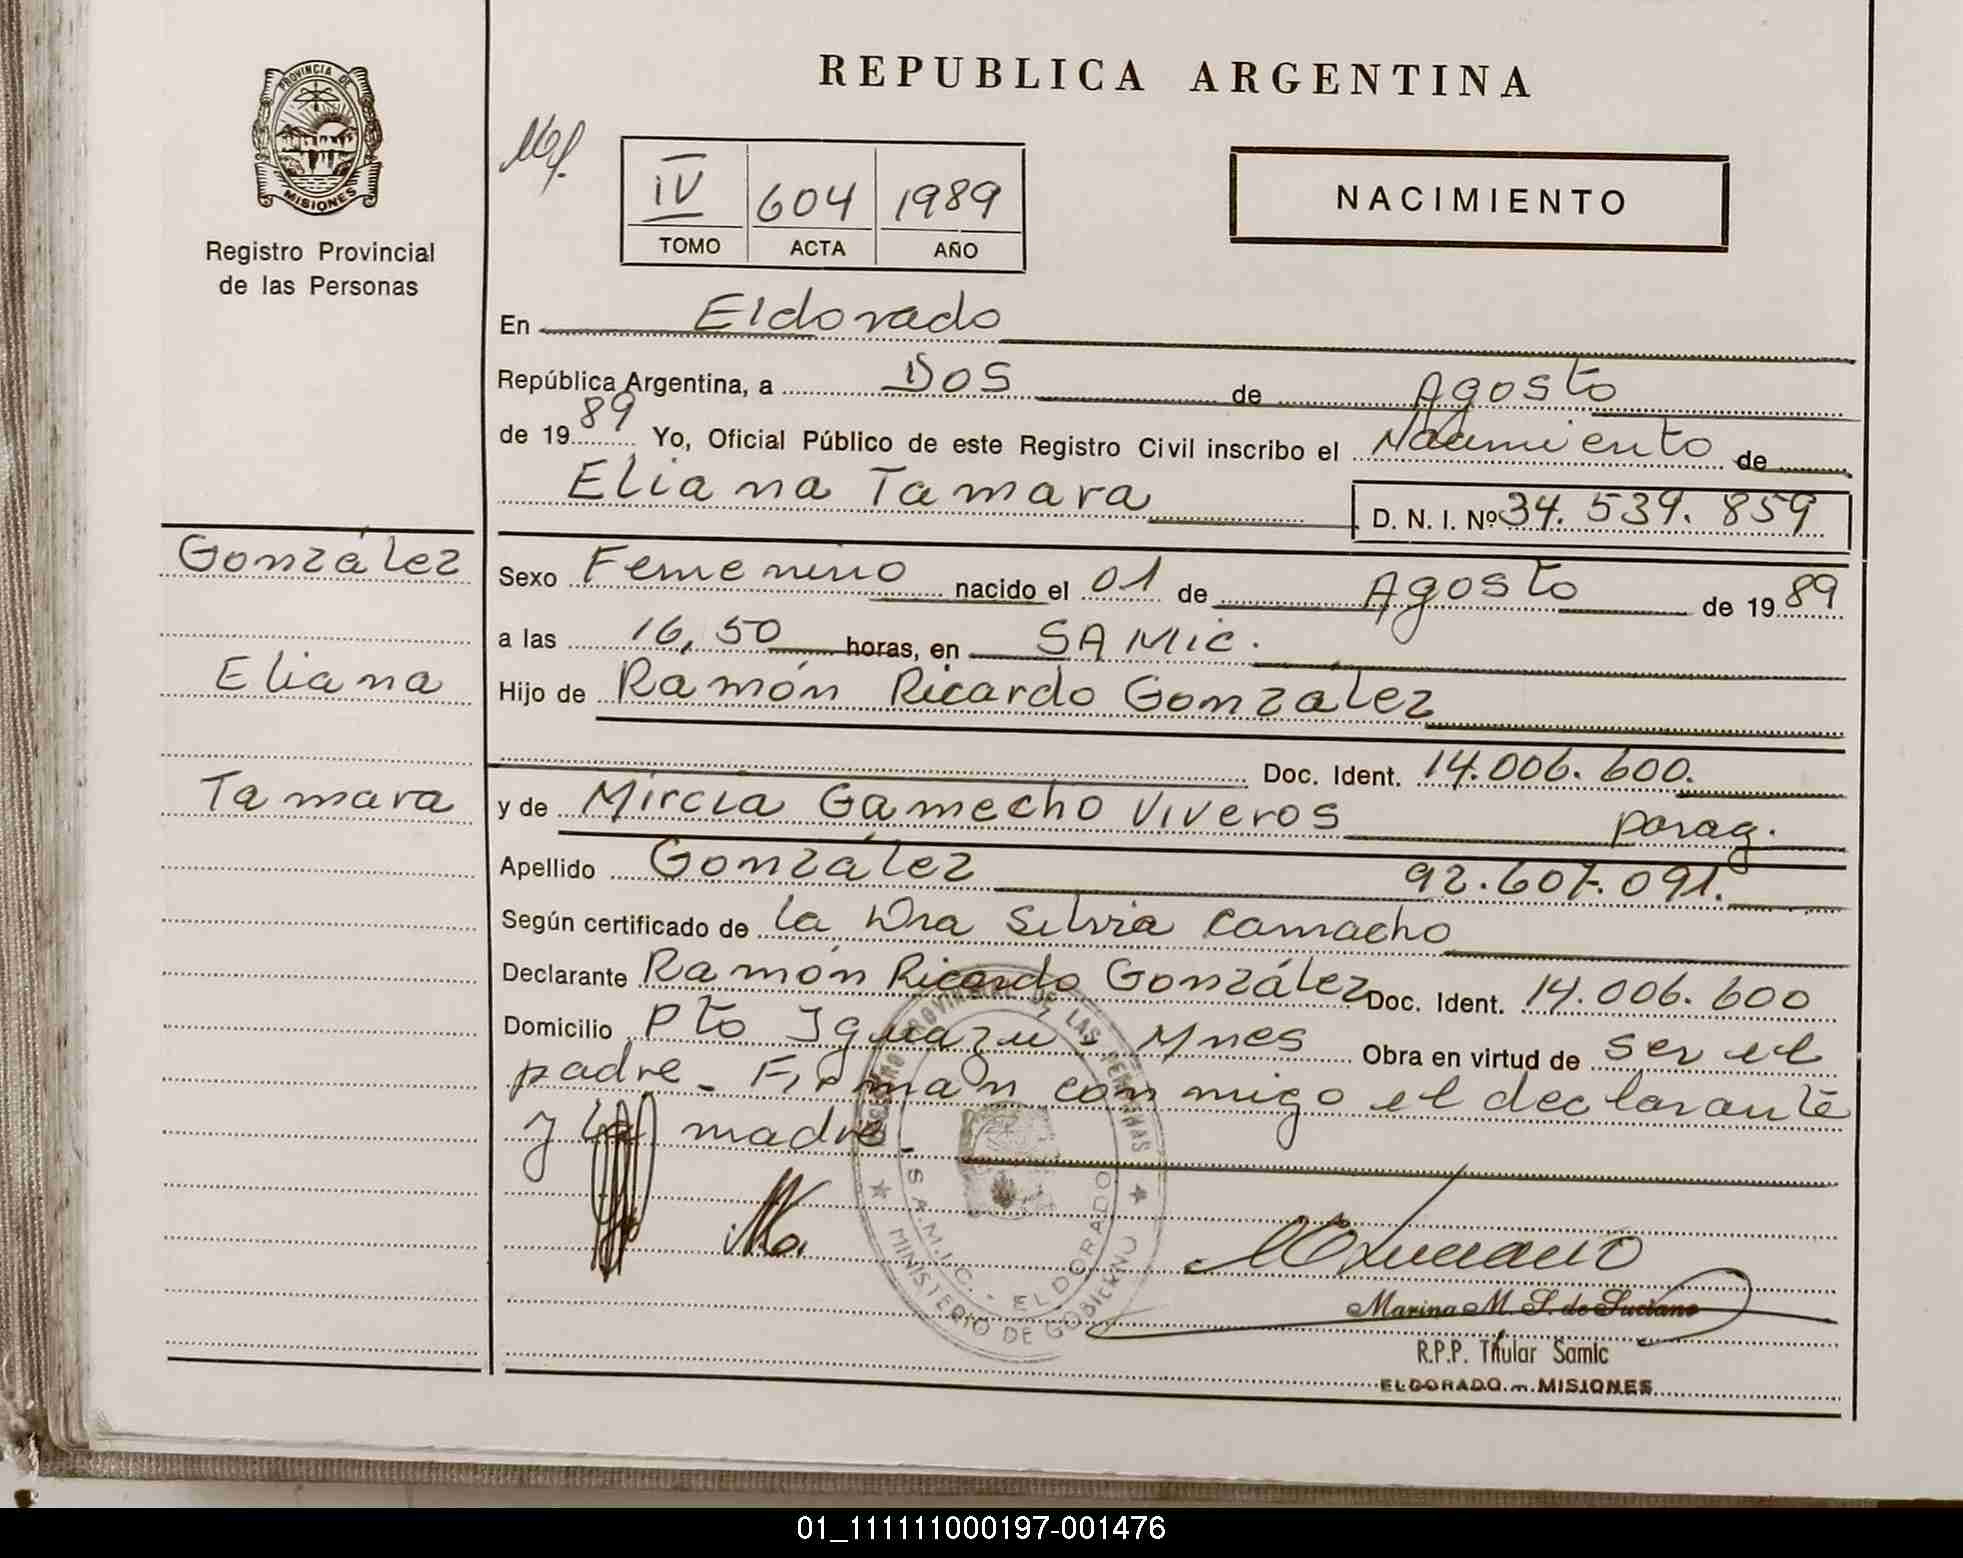 REPUBLICA ARGENTINA
PROVINCIA DE
MISIONES
Registro Provincial
de las Personas
IV 604 1989
TOMO ACTA AÑO
NACIMIENTO
En Eldorado
República Argentina, a Dos de Agosto
de 1989 Yo, Oficial Público de este Registro Civil inscribo el Nacimiento de
Eliana Tamara D. N. I. Nº 34.539.859
González
Eliana
Tamara
Sexo Femenino nacido el 01 de Agosto de 1989
a las 16,50 horas, en SAMic.
Hijo de Ramón Ricardo González
Doc. Ident. 14.006.600.
y de Mircia Gamecho Viveros parag.
Apellido González 92.607.091.
Según certificado de la Dra Silvia Camacho
Declarante Ramón Ricardo González Doc. Ident. 14.006.600
Domicilio Pto Iguazu, Mnes Obra en virtud de ser el
padre - Firman conmigo el declarante
y la madre.
REGISTRO PROVINCIAL DE LAS PERSONAS
S.A.M.I.C. - ELDORADO
MINISTERIO DE GOBIERNO
Marina M. S. de Luciano
R.P.P. Titular Samic
ELDORADO - MISIONES
01_111111000197-001476